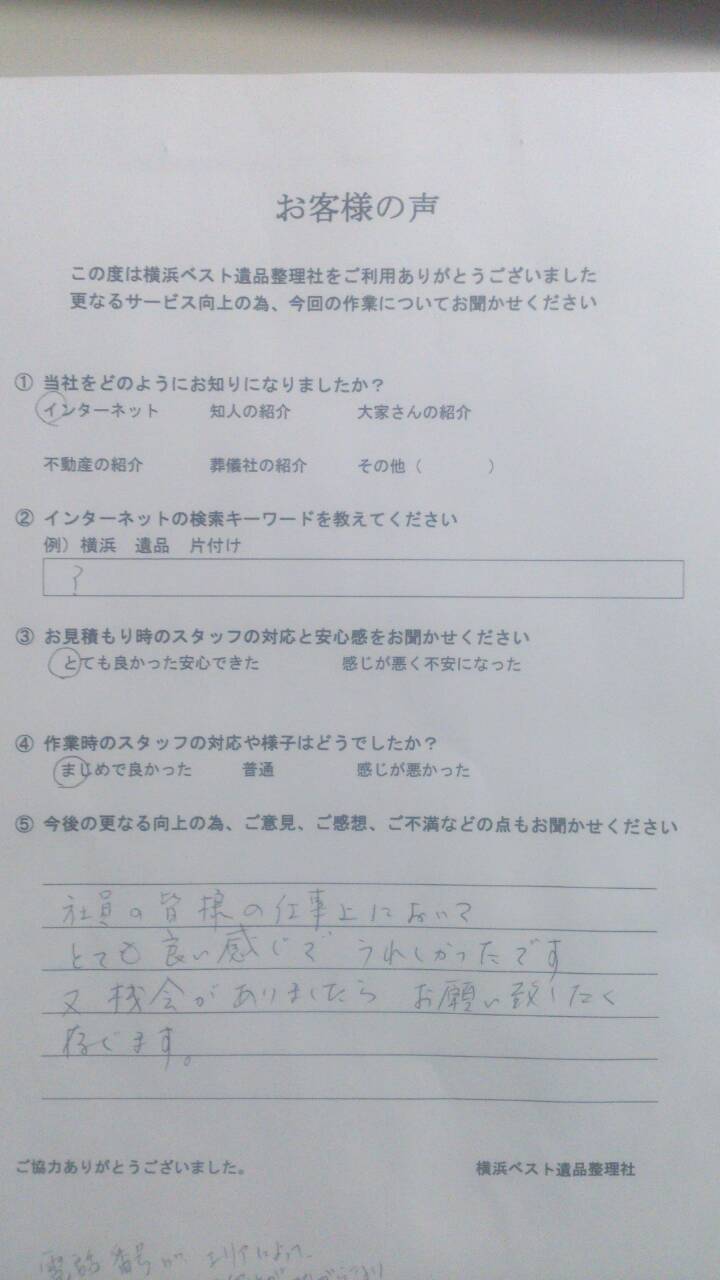 お客様の声
この度は横浜ベスト遺品整理社をご利用ありがとうございました
更なるサービス向上の為、今回の作業についてお聞かせください
① 当社をどのようにお知りになりましたか？
インターネット 知人の紹介 大家さんの紹介
不動産の紹介 葬儀社の紹介 その他（ ）
② インターネットの検索キーワードを教えてください
例）横浜 遺品 片付け
？
③ お見積もり時のスタッフの対応と安心感をお聞かせください
とても良かった安心できた 感じが悪く不安になった
④ 作業時のスタッフの対応や様子はどうでしたか？
まじめで良かった 普通 感じが悪かった
⑤ 今後の更なる向上の為、ご意見、ご感想、ご不満などの点もお聞かせください
社員の皆様の仕事上において
とても良い感じで うれしかったです
又 機会がありましたら お願い致したく
存じます。
ご協力ありがとうございました。 横浜ベスト遺品整理社
電話番号が エリアによって